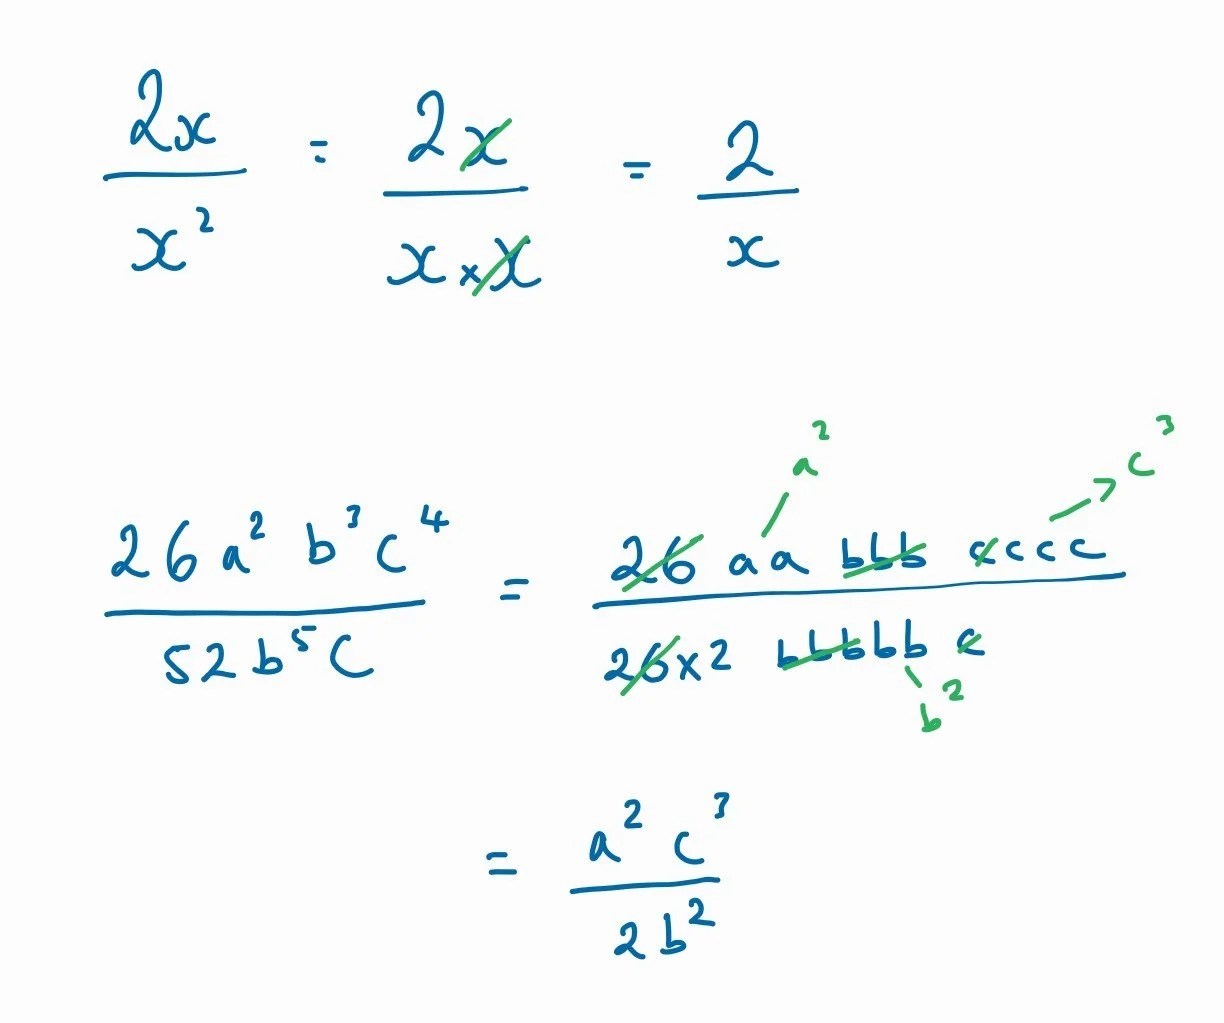 2x/x² = 2x/x×x = 2/x
a² c³
26a²b³c⁴/52b⁵c = 26 aa bbb cccc/26×2 bbbbb c
b²
= a²c³/2b²